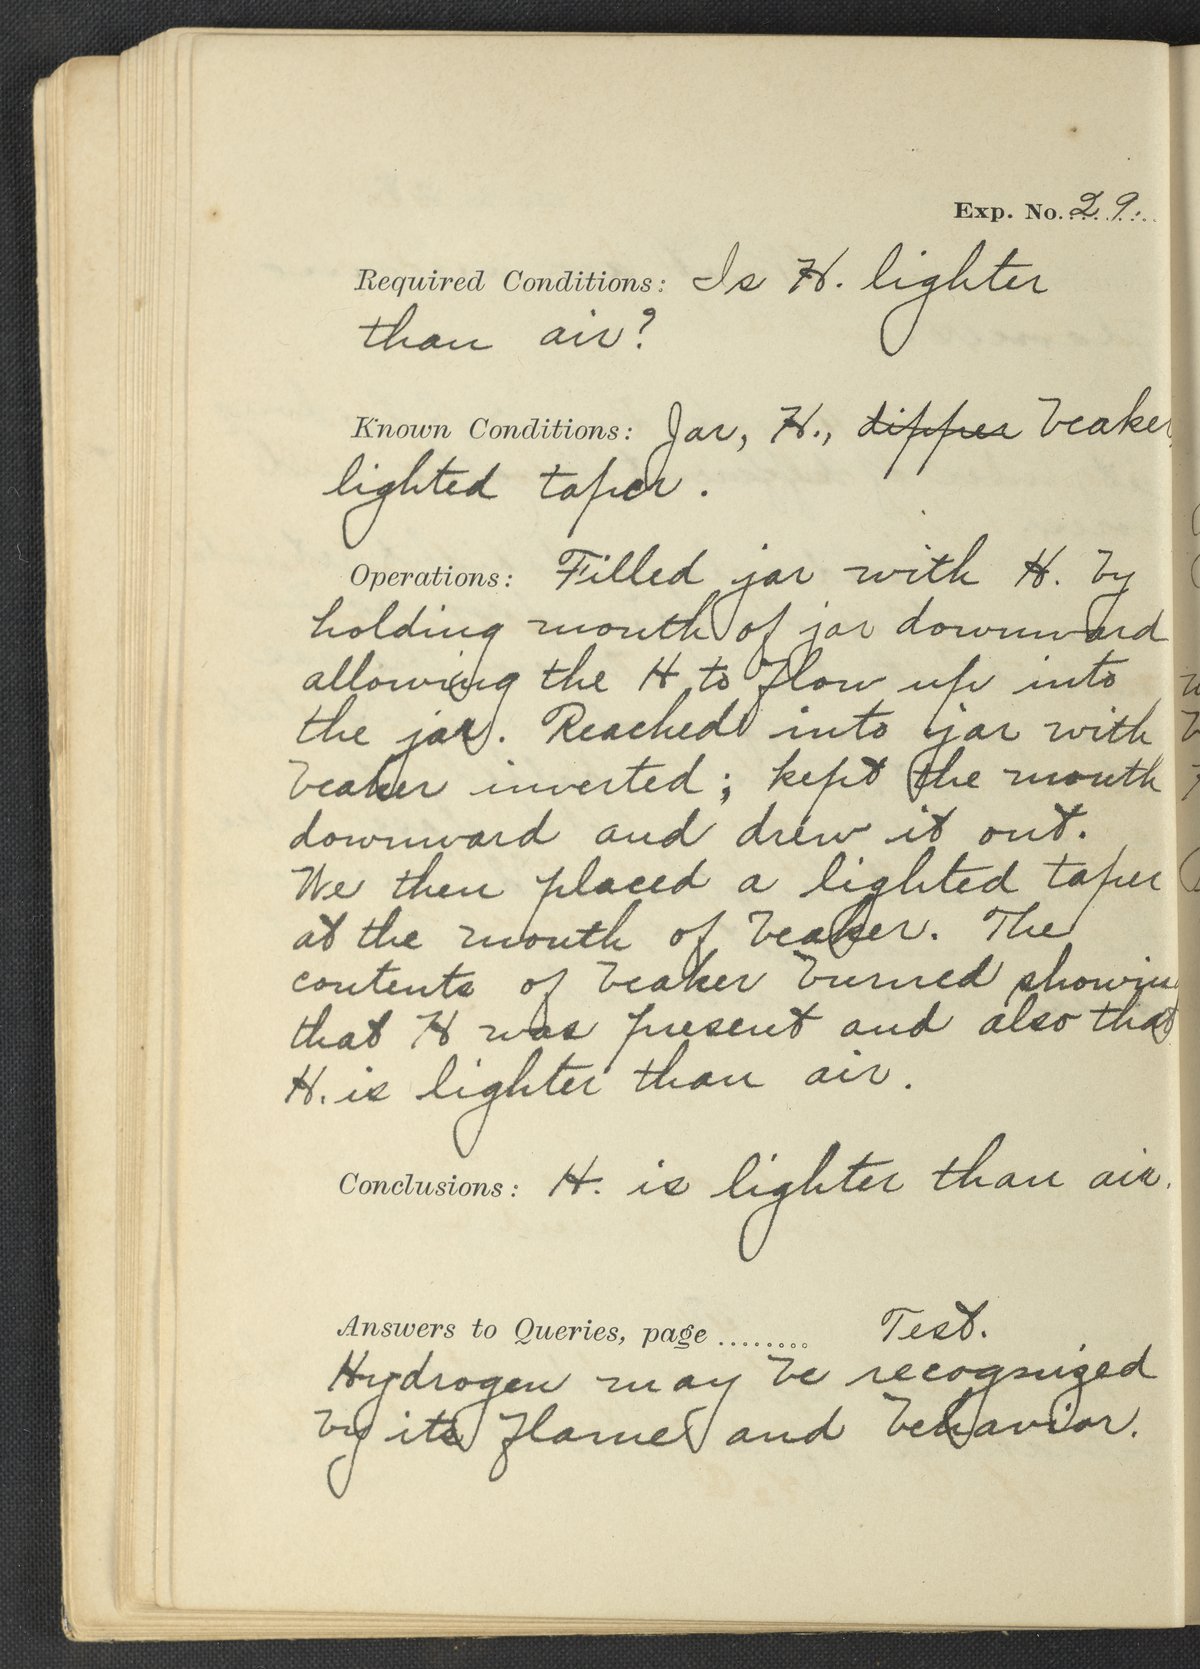 Exp. No. 29.
Required Conditions: Is H. lighter
than air?
Known Conditions: Jar, H., dipper beaker,
lighted taper.
Operations: Filled jar with H. by
holding mouth of jar downward
allowing the H to flow up into
the jar. Reached into jar with
beaker inverted; kept the mouth
downward and drew it out.
We then placed a lighted taper
at the mouth of beaker. The
contents of beaker burned showing
that H was present and also that
H. is lighter than air.
Conclusions: H. is lighter than air.
Answers to Queries, page ........ Test.
Hydrogen may be recognized
by its flame and behavior.